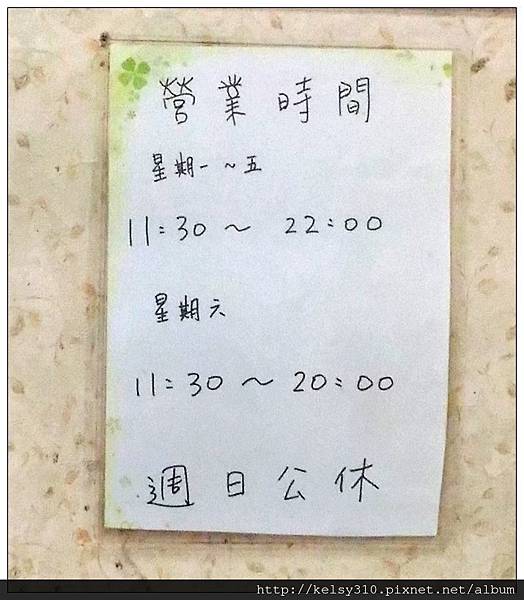 營業時間
星期一~五
11:30~22:00
星期六
11:30~20:00
週日公休
http://kelsy310.pixnet.net/album